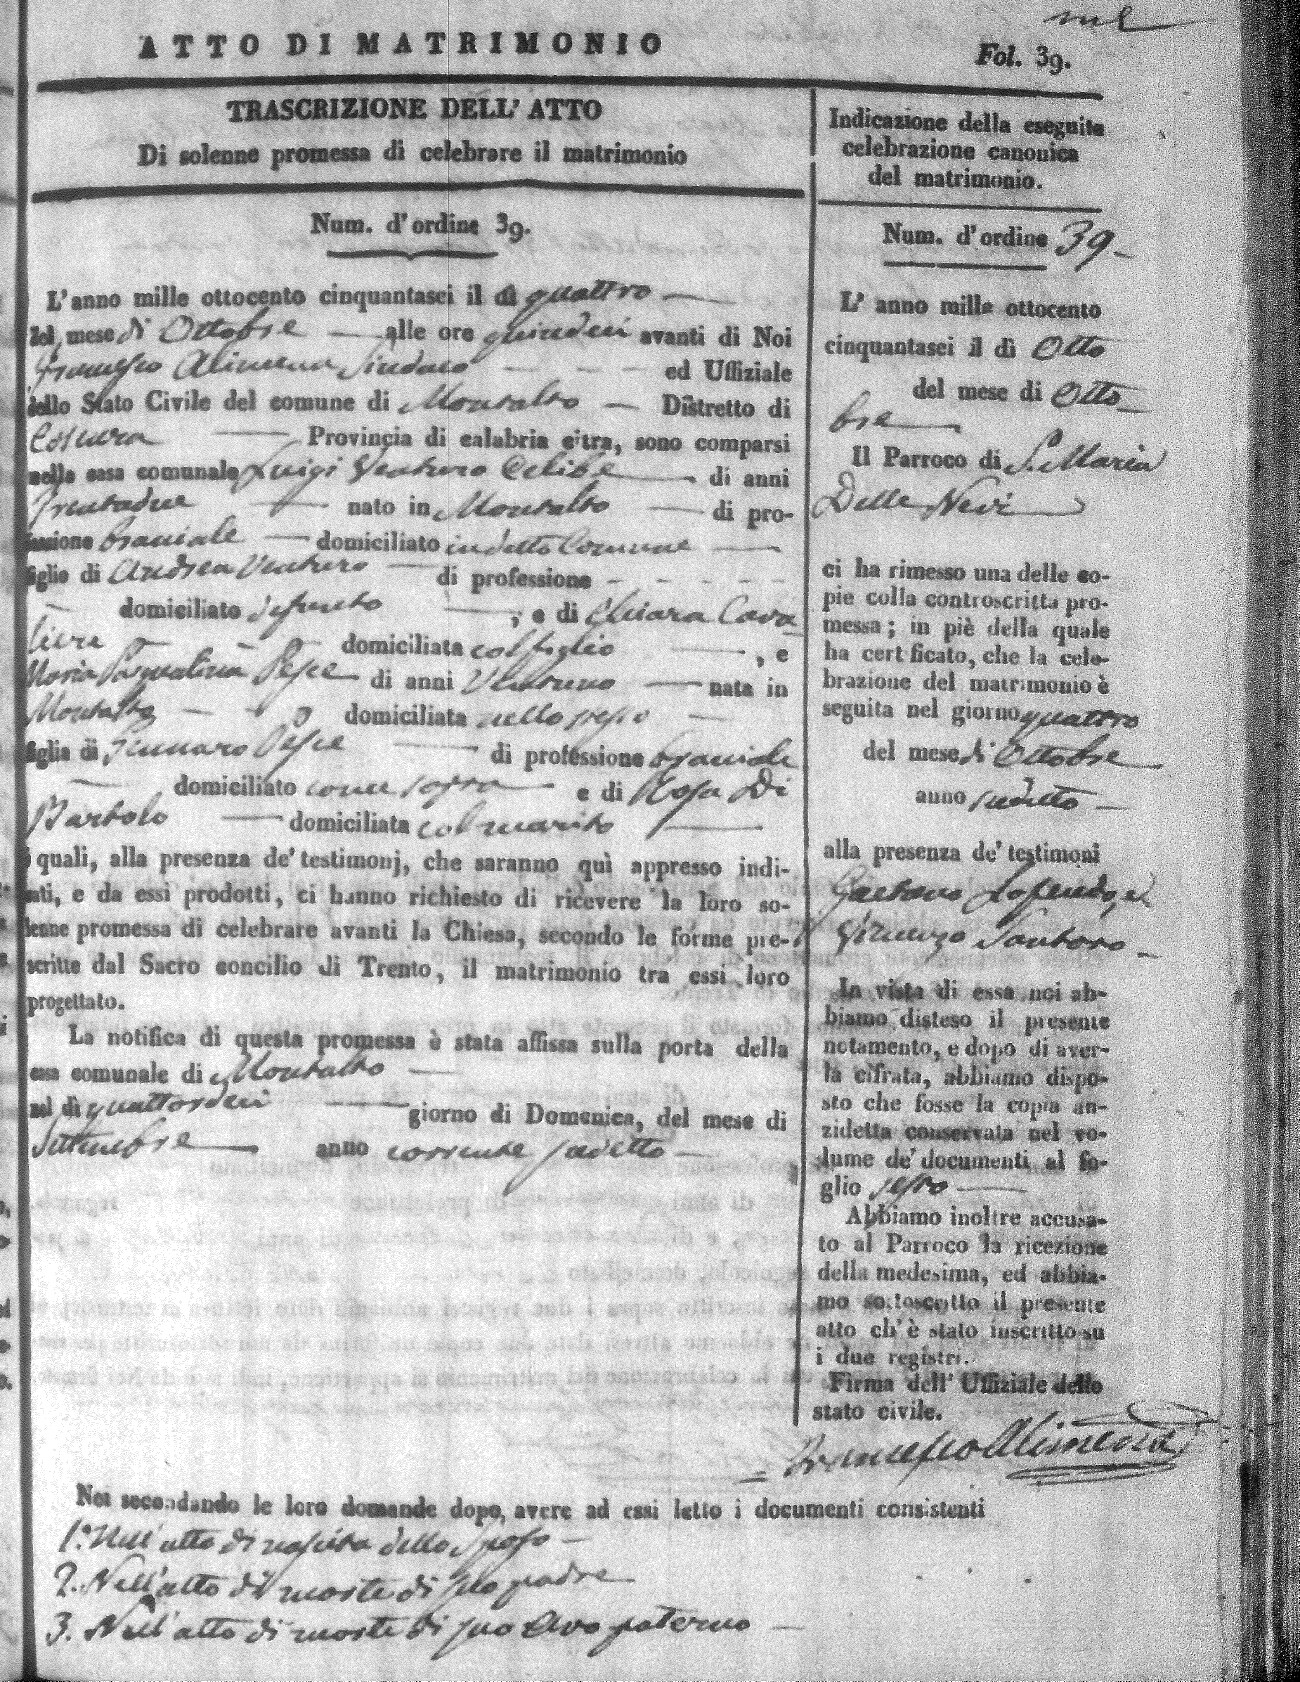 ATTO DI MATRIMONIO
Fol. 39.
TRASCRIZIONE DELL' ATTO
Di solenne promessa di celebrare il matrimonio
Num. d'ordine 39.
L'anno mille ottocento cinquantasei il dì quattro
del mese di Ottobre alle ore quindeci avanti di Noi
Francesco Alimena Sindaco ed Uffiziale
dello Stato Civile del comune di Montalto Distretto di
Cosenza Provincia di calabria citra, sono comparsi
nella casa comunale Luigi Venturo Celibe di anni
Trentadue nato in Montalto di pro-
fessione braciale domiciliato in detto Comune
figlio di Andrea Venturo di professione
domiciliato defunto , e di Chiara Cava
liere domiciliata col figlio , e
Maria Pasqualina Pesce di anni Ventuno nata in
Montalto domiciliata nello stesso
figlia di Gennaro Pesce di professione braciale
domiciliato come sopra e di Rosa Di
Bartolo domiciliata col marito
I quali, alla presenza de' testimonj, che saranno quì appresso indi-
cati, e da essi prodotti, ci hanno richiesto di ricevere la loro so-
lenne promessa di celebrare avanti la Chiesa, secondo le forme pre-
scritte dal Sacro concilio di Trento, il matrimonio tra essi loro
progettato.
La notifica di questa promessa è stata affissa sulla porta della
casa comunale di Montalto
nel dì quattordeci giorno di Domenica, del mese di
Settembre anno corrente sudetto
Indicazione della eseguita
celebrazione canonica
del matrimonio.
Num. d'ordine 39
L' anno mille ottocento
cinquantasei il dì Otto
del mese di Otto
bre
Il Parroco di S. Maria
Delle Nevi
ci ha rimesso una delle co-
pie colla controscritta pro-
messa; in piè della quale
ha certificato, che la cele-
brazione del matrimonio è
seguita nel giorno quattro
del mese di Ottobre
anno sudetto
alla presenza de' testimoni
Gaetano
Santoro
In vista di essa noi ab-
biamo disteso il presente
notamento, e dopo di aver-
la cifrata, abbiamo dispo-
sto che fosse la copia an-
zidetta conservata nel vo-
lume de' documenti al fo-
glio sesto
Abbiamo inoltre accusa-
to al Parroco la ricezione
della medesima, ed abbia-
mo sottoscritto il presente
atto ch' è stato inscritto su
i due registri.
Firma dell' Uffiziale dello
stato civile.
Francesco Alimena
Noi secondando le loro domande dopo, avere ad essi letto i documenti consistenti
1.° Nell'atto di nascita dello Sposo
2. Nell'atto di morte di suo padre
3. Nell'atto di morte di suo Avo paterno